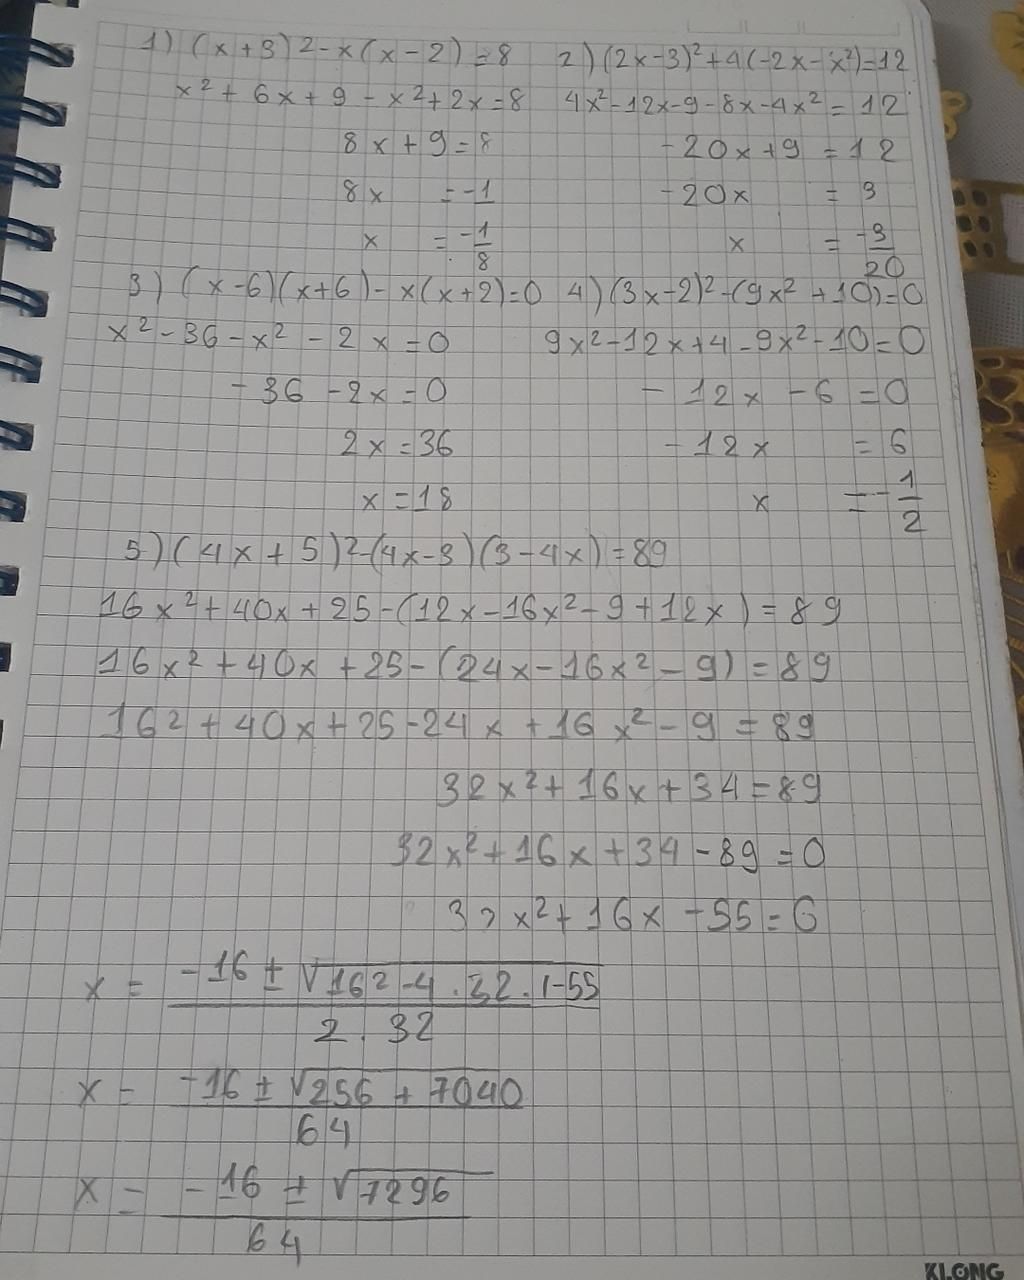 1) (x+3)2-x(x-2)=8
x²+6x+9-x²+2x=8
8x+9=8
8x = -1
x = -1/8
2) (2x-3)²+4(-2x-x²)=12
4x²-12x-9-8x-4x²=12
-20x+9 = 12
-20x = 3
x = -3/20
3) (x-6)(x+6)-x(x+2)=0
x²-36-x²-2x=0
-36-2x=0
2x=36
x=18
4) (3x-2)²-(9x²+10)=0
9x²-12x+4-9x²-10=0
-12x-6=0
-12x = 6
x = -1/2
5) (4x+5)2-(4x-3)(3-4x)=89
16x²+40x+25-(12x-16x²-9+12x)=89
16x²+40x+25-(24x-16x²-9)=89
162+40x+25-24x+16x²-9=89
32x²+16x+34=89
32x²+16x+34-89=0
32x²+16x-55=0
x = -16±√162-4.32.(-55 / 2.32
x = -16±√256+7040 / 64
x = -16±√7296 / 64
KLONG